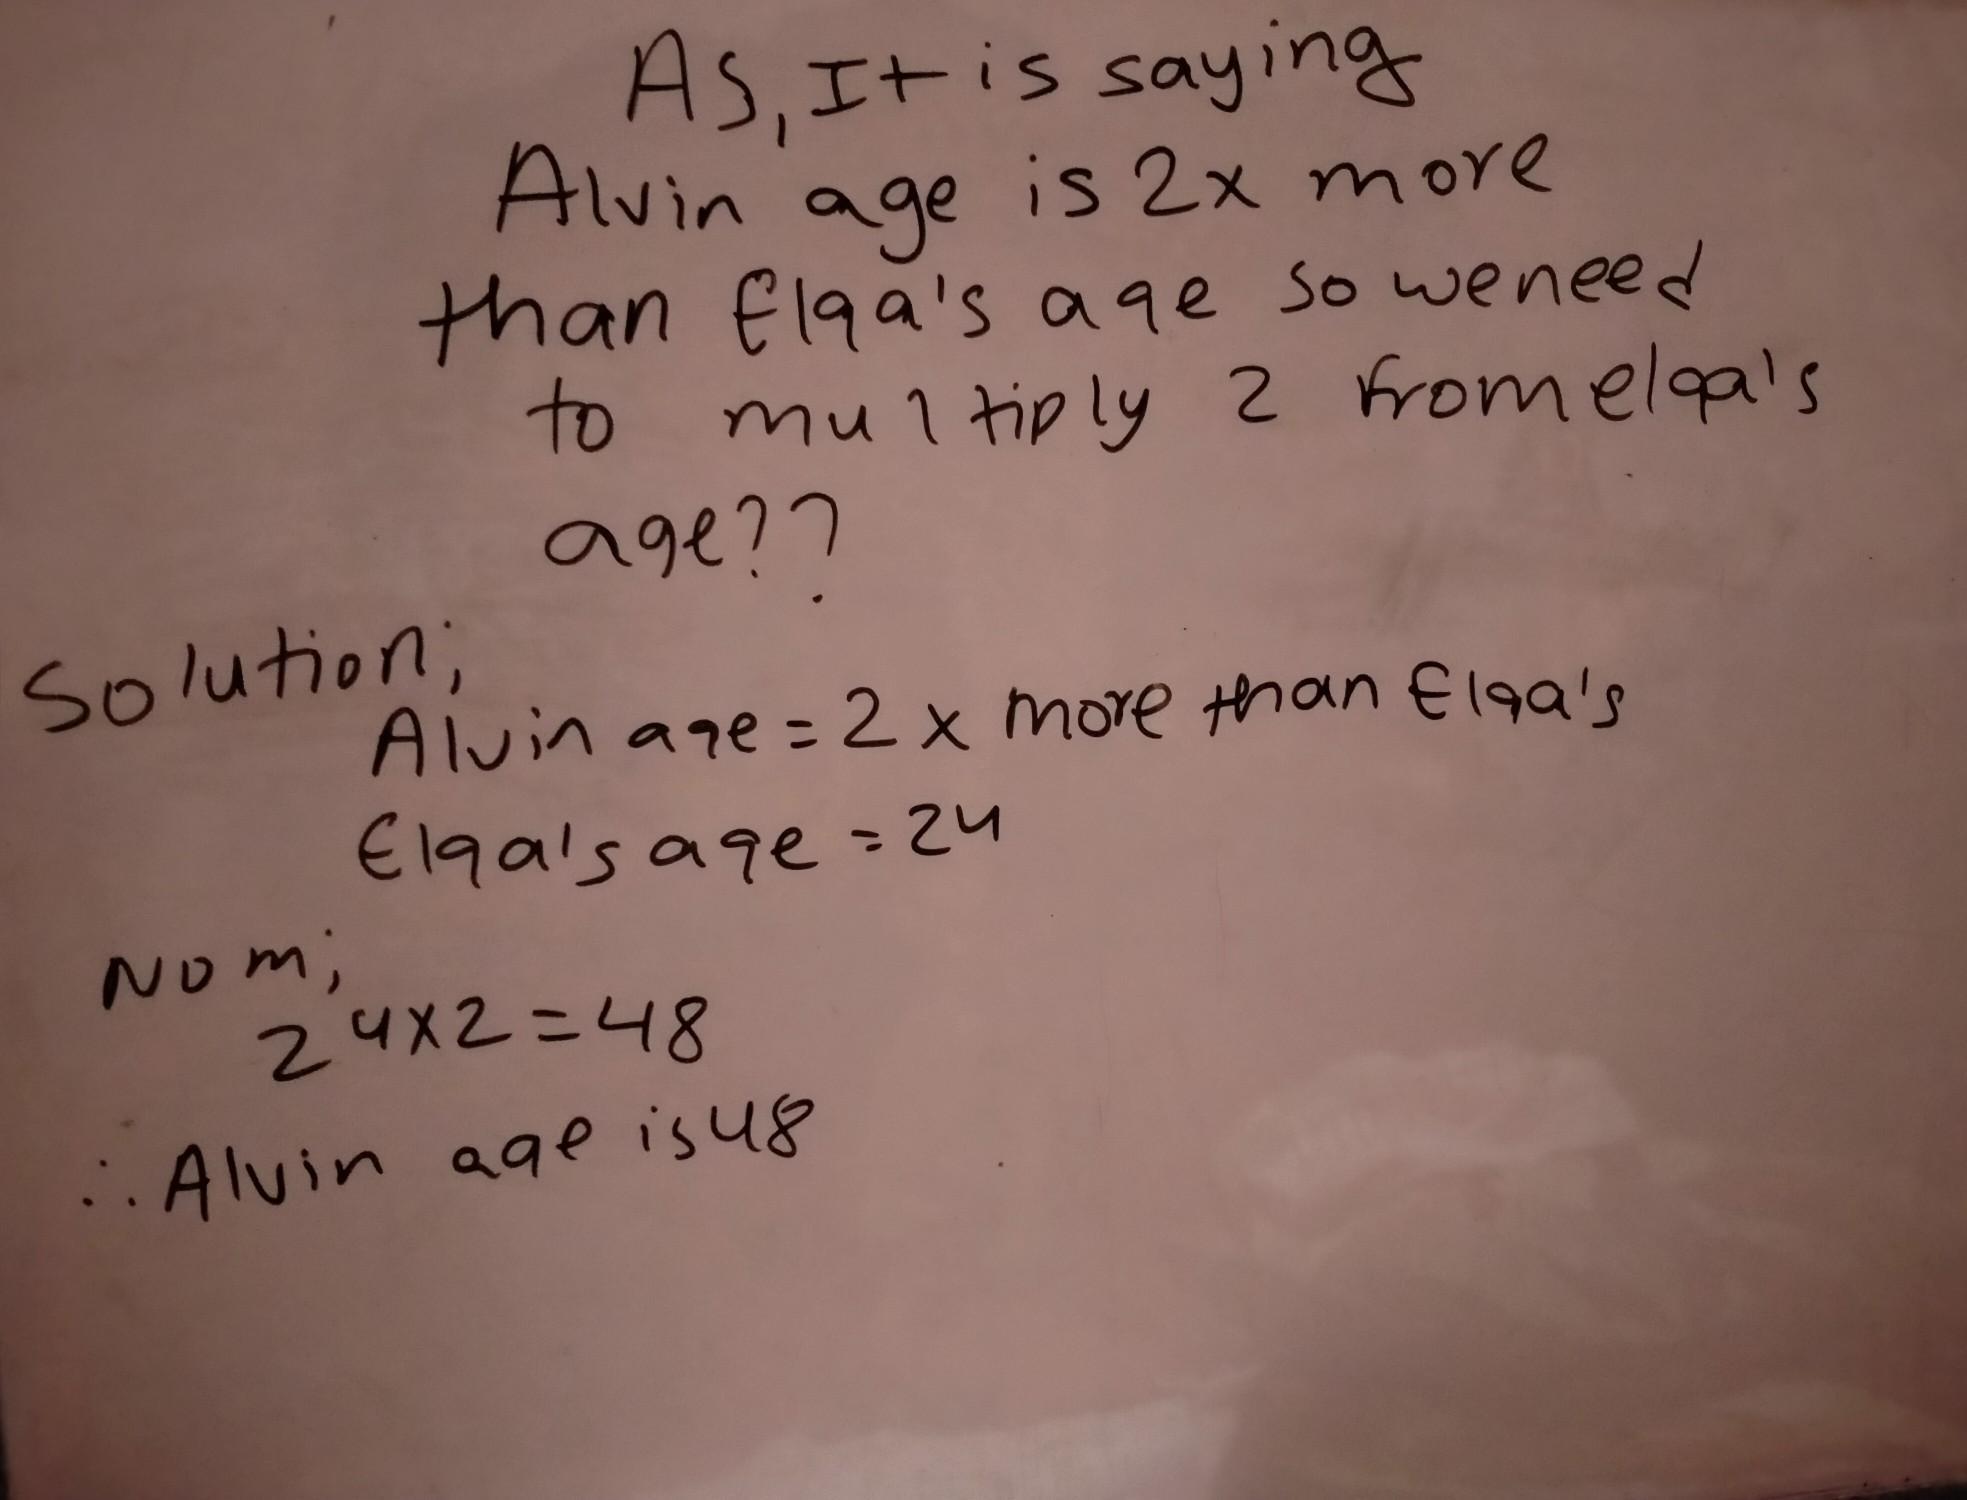 As, It is saying
Alvin age is 2x more
than Elga's age so we need
to multiply 2 from elga's
age??
Solution;
Alvin age = 2 x more than Elga's
Elga's age = 24
Nom;
24x2=48
∴ Alvin age is 48